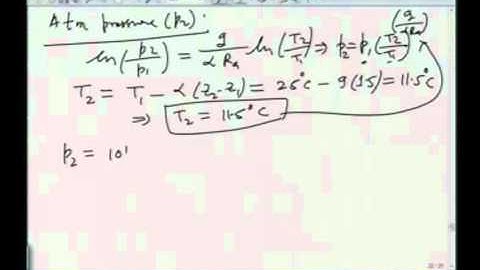 Atm pressure (p2).
ln(p2/p1) = g/αRa ln(T2/T1) ⇒ p2 = p1 (T2/T1)^(g/αRa)
T2 = T1 - α(z2-z1) = 25°C - 9(1.5) = 11.5°C
⇒ T2 = 11.5°C
p2 = 101